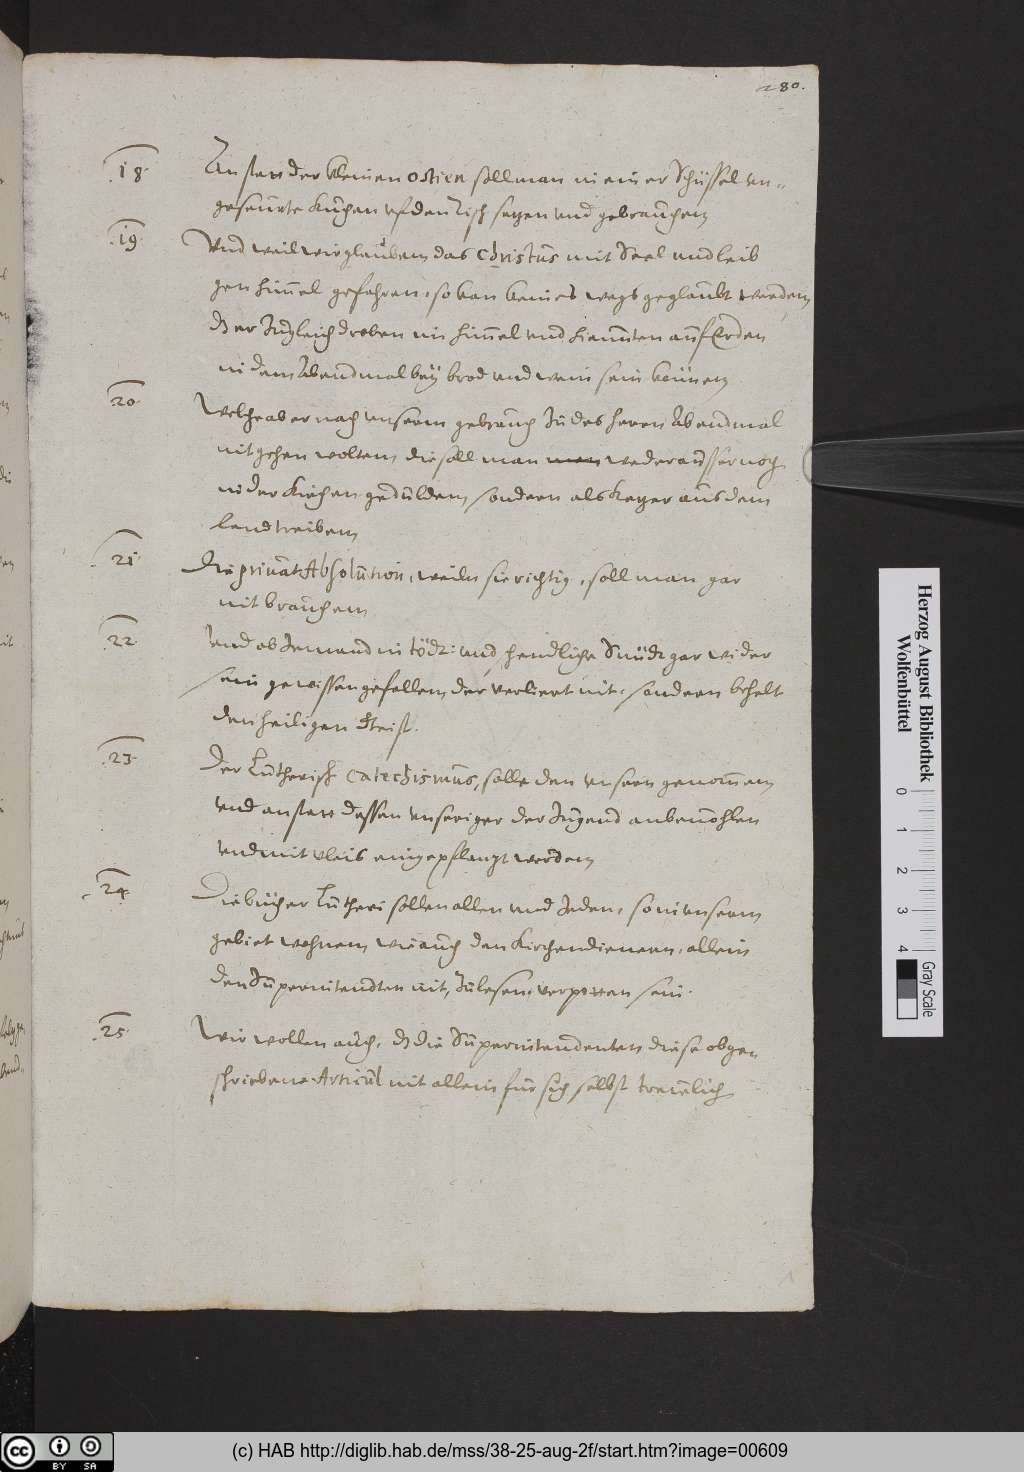 280.
18. An statt der kleinen ostien soll man in einer Schüssel un-
gesеurte kuchen uf den Tisch setzen und gebrauchen
19. Und weil wir glauben das Christus mit Seel und leib
gen himmel gefahren, so kan keines wegs geglaubt werden,
dz er zugleich droben im himmel und hienunten auf Erden
in dem Abendmal bey brod und wein sein können
20. Welche aber nach unserm gebrauch zu des herren Abendmal
nit gehen wolten, die soll man weder ausser noch
in der kirchen gedulden, sondern als ketzer aus dem
land treiben
21. Die privat Absolution, weiln sie richtig, soll man gar
nit brauchen
22. Und ob Jemand in tödt: und schendliche Sündt gar wider
sein gewissen gefallen, der verliert nit, sondern behelt
den heiligen Geist.
23. Der Lutherisch Catechismus, solle den unsern genommen
und anstatt dessen unseriger der Jugend anbevohlen
und mit vleis eingepflanzt werden
24. Die bücher Lutheri sollen allen und Jeden, so in unserm
gebiet wohnen, wie auch den kirchendienern, allein
den Superintendten nit, zulesen verpotten sein.
25. Wir wollen auch, dz die Superintendenten diese obge-
schriebene Articul nit allein für sich selbst treulich
Herzog August Bibliothek
Wolfenbüttel
0 1 2 3 4
Gray Scale
cc BY SA
(c) HAB http://diglib.hab.de/mss/38-25-aug-2f/start.htm?image=00609